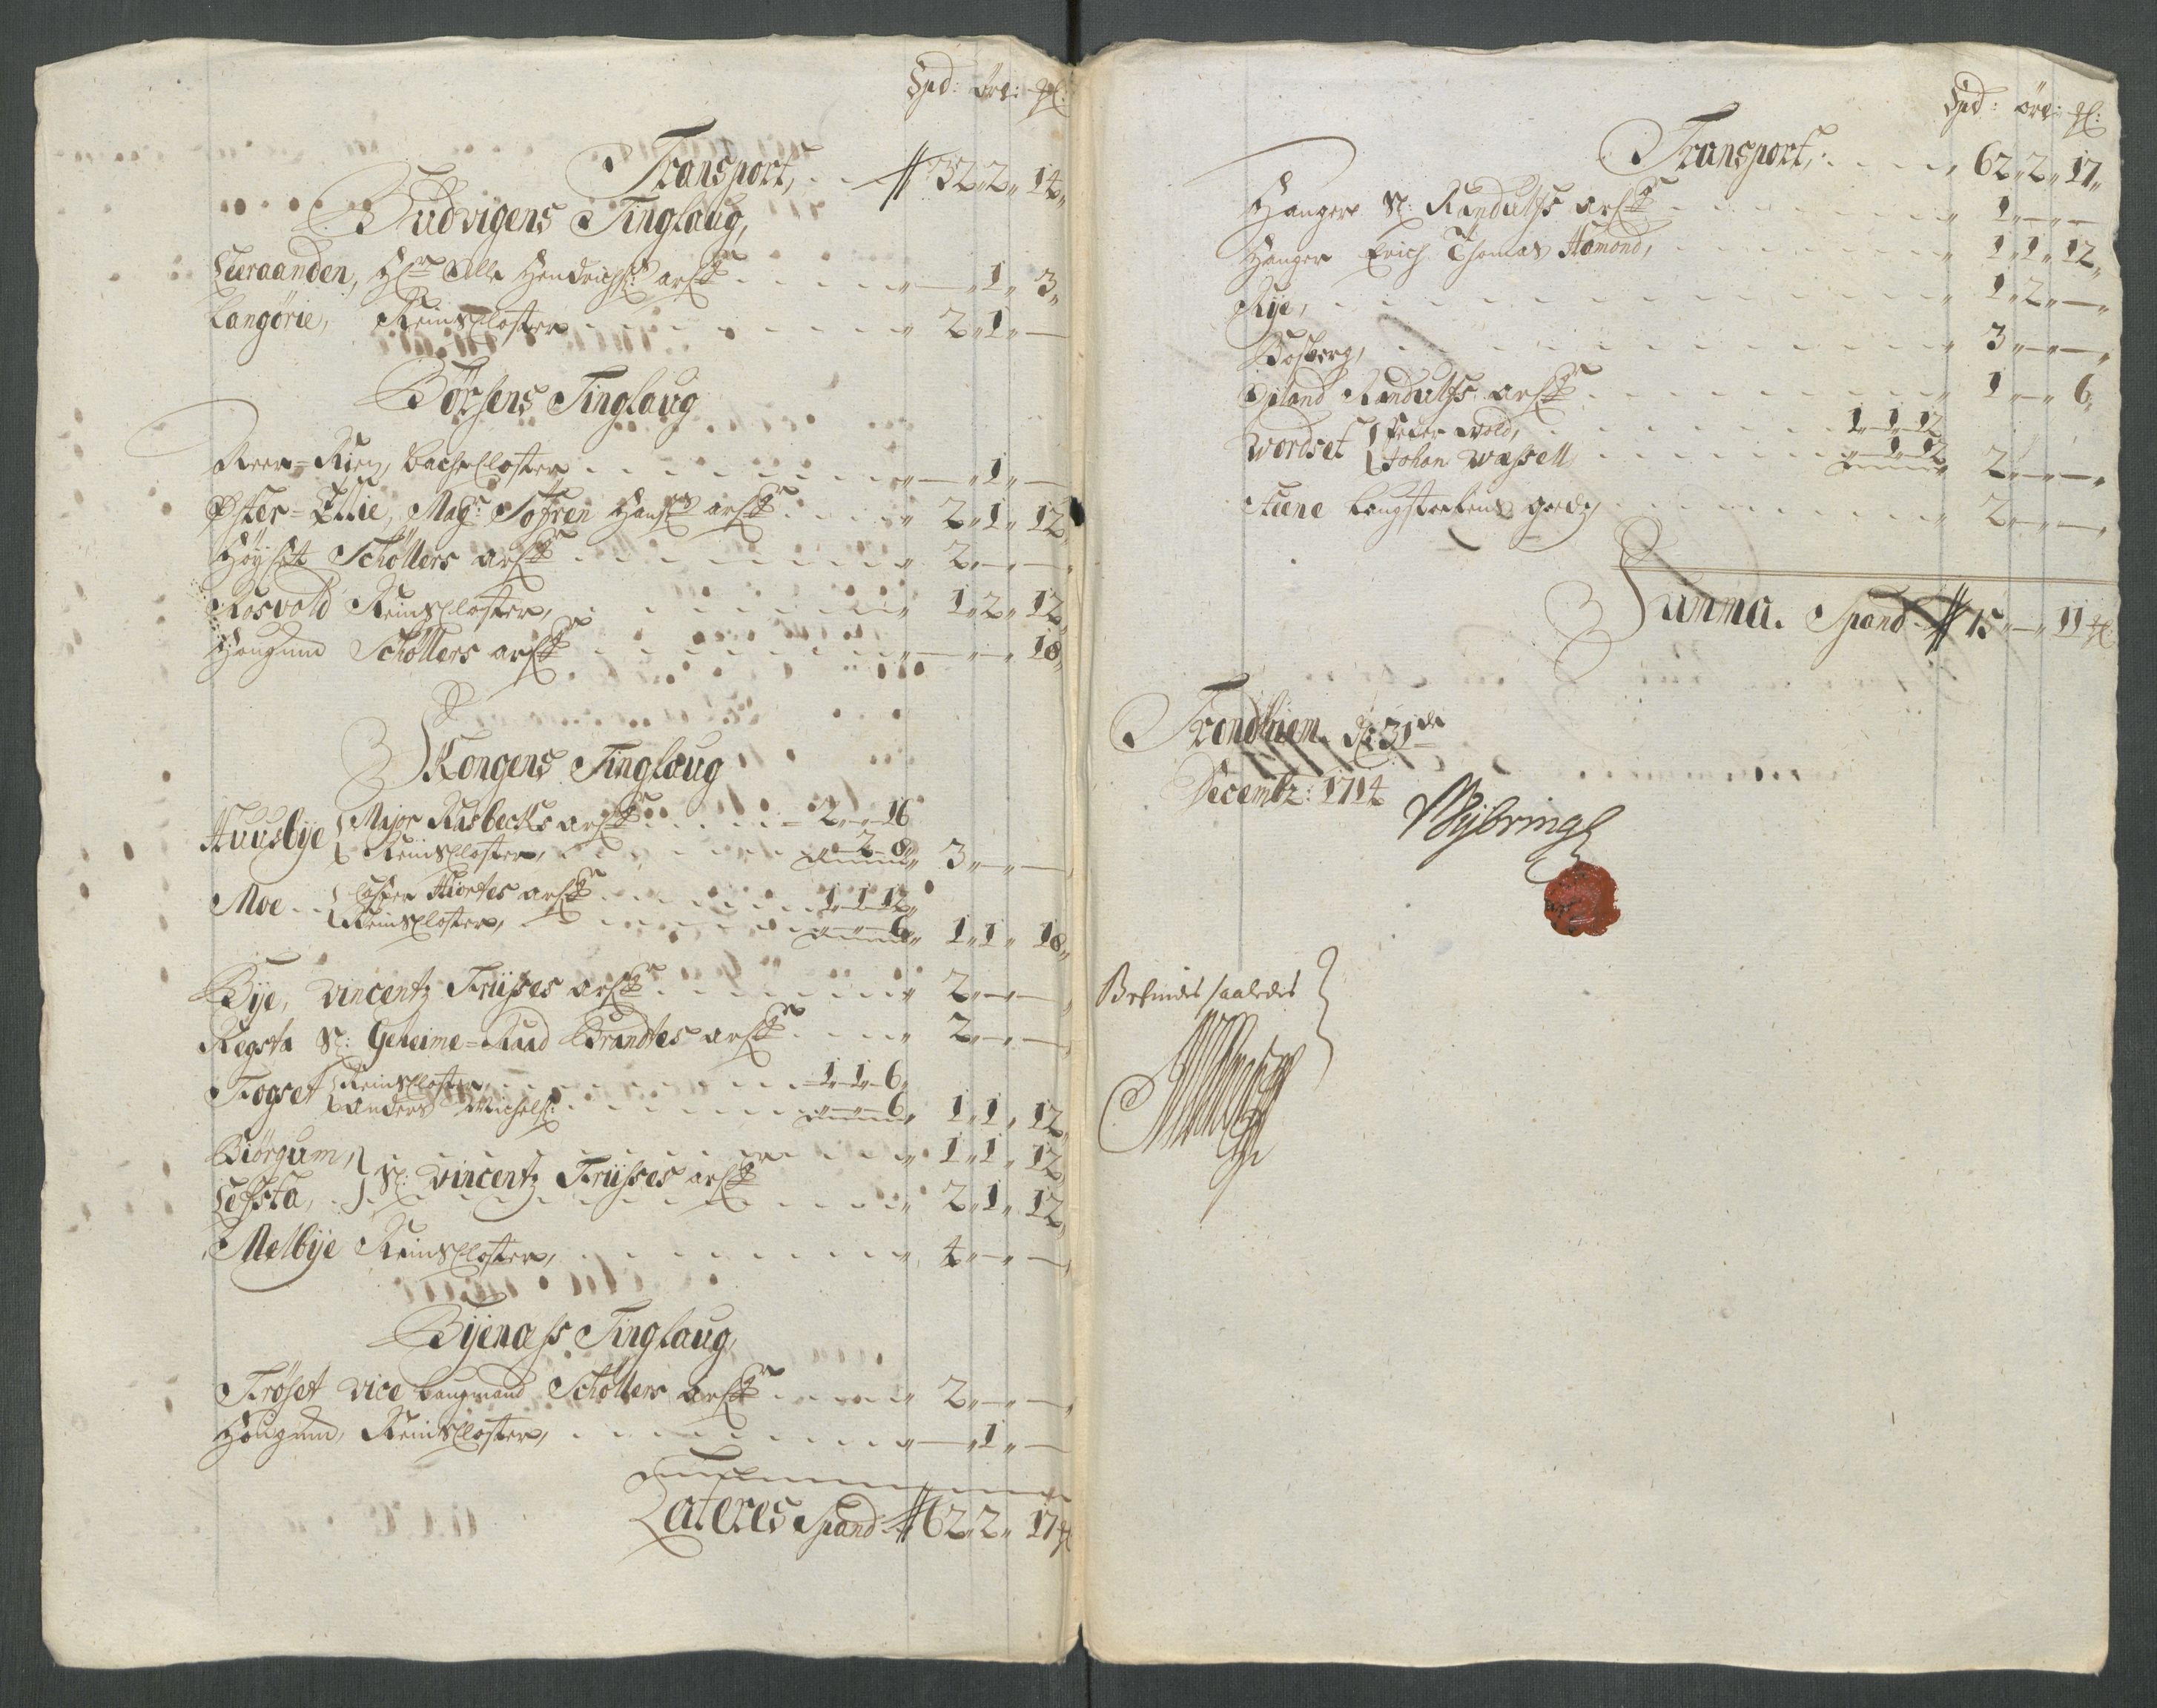 Spd: öre: ꝳ:
Transport, 32 2 14
Budvigens Tinglaug,
Leeraanden, Hr Olle Hendrichs: arf: 1 3
Langörie, Reinscloster 2 1 —
Börsens Tinglaug
Reer-Rien, bache Closter — 1 —
Øster-Ellie, Magr: Sofren Hans: arf: 2 1 12
Höyset Schöllers arf: 2 — —
Rosvold Reinscloster, 1 2 12
Haugum Schöllers arf: — — 18
Skongens Tinglaug
Huusbye Major Risbecks arf: 2 — 16
Reinscloster, — 2 8 3 — —
Moe Casper Hiortes arf: 1 1 12
Reinscloster, — — 6 1 1 18
Bye, Vincentz Friisses arf: 2 — —
Regsta Sl: Geheime-Raad Brandtes arf: 2 — —
Togset Reinscloster, 1 1 6
Anders Michels: — — 6 1 1 12
Biörgum, 1 1 12
Sl: Vincentz Friisses arf:
Lefsta, 2 1 12
Melbye Reinscloster, 4 — —
Byenass Tinglaug,
Fröset Vice Laugmand Schöllers arf: 2 — —
Haugum, Reinscloster, — 1 —
Lateres Spand 62 2 17
Spd: öre: ꝳ:
Transport, 62 2 17
Hangere Sl: Randulfs arf: 1 — —
Hanger Erich Thomas Hamond, 1 1 12
Rye, 1 2 —
Bosberg, 3 — —
Opland Randulfs arf: 1 — 6
Wordset Peder Wold, 1 1 12
Johan Wessell — 1 12 2 — —
Steene Langstackens godz 2 — —
Summa. Spand 75 — 11
Trondhiem. d: 31de
Decembr: 1714
Befindes saaledes